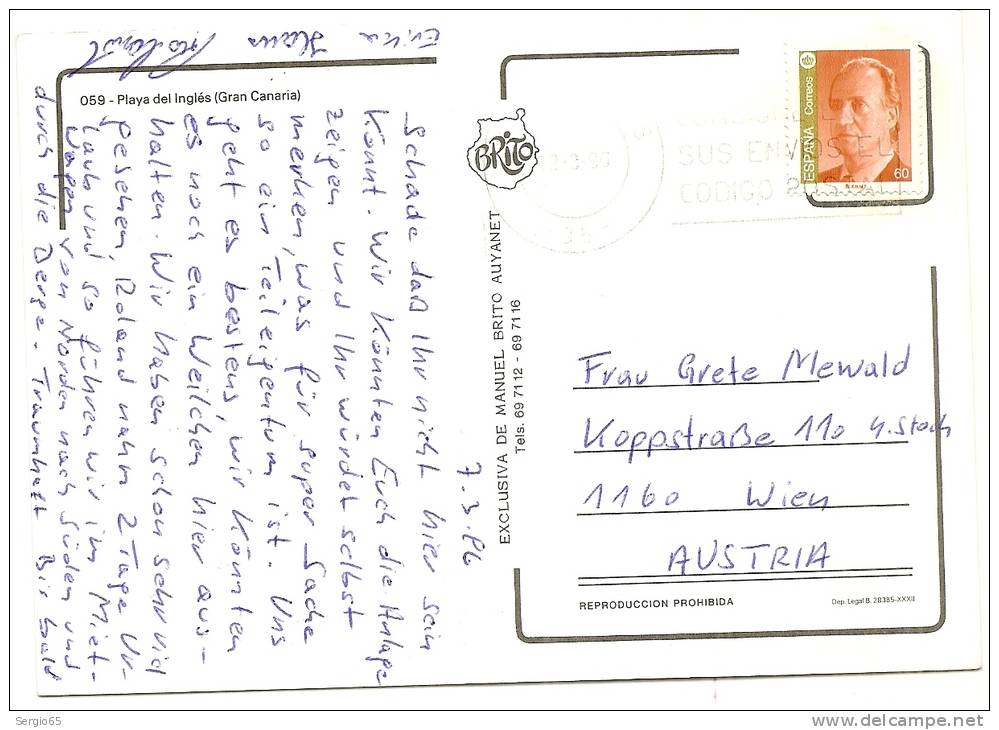 059 - Playa del Inglés (Gran Canaria)
7.3.96
Schade daß Ihr nicht hier sein
könnt. Wir könnten Euch die Anlage
zeigen und Ihr würdet selbst
merken, was für super Sache
so ein Teileigentum ist. Uns
geht es bestens, wir könnten
es noch ein Weilchen hier aus-
halten. Wir haben schon sehr viel
gesehen, Roland nahm 2 Tage Ur-
laub und so führen wir im Miet-
wagen von Norden nach Süden und
durch die Berge. Traumhaft Bis bald
Erika Hans Roland
BRITO
EXCLUSIVA DE MANUEL BRITO AUYANET
Tels. 69 71 12 - 69 71 16
SUS ENVIOS EL
CODIGO POSTAL
ESPAÑA Correos
60
Frau Grete Mewald
Koppstraße 110 4. Stock
1160 Wien
AUSTRIA
REPRODUCCION PROHIBIDA
Dep. Legal B. 28385-XXXII
Sergio65
delcampe.net